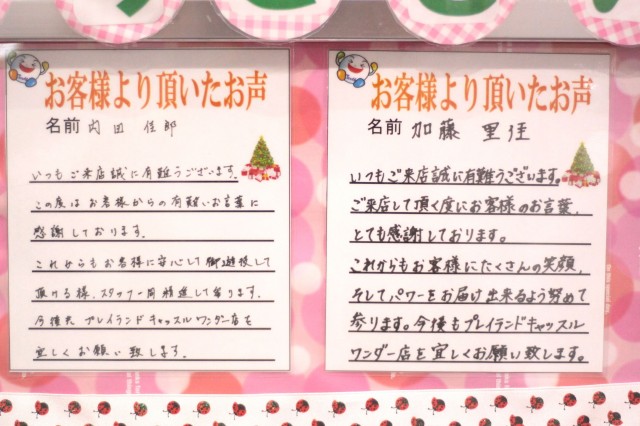 お客様より頂いたお声
名前 内田 佳郎
いつもご来店誠に有難うございます。
この度はお客様からの有難いお言葉に
感謝しております。
これからもお客様に安心して御遊技して
頂ける様、スタッフ一同精進して参ります。
今後共プレイランドキャッスルワンダー店を
宜しくお願い致します。
お客様より頂いたお声
名前 加藤 里佳
いつもご来店誠に有難うございます。
ご来店して頂く度にお客様のお言葉、
とても感謝しております。
これからもお客様にたくさんの笑顔、
そしてパワーをお届け出来るよう努めて
参ります。今後もプレイランドキャッスル
ワンダー店を宜しくお願い致します。